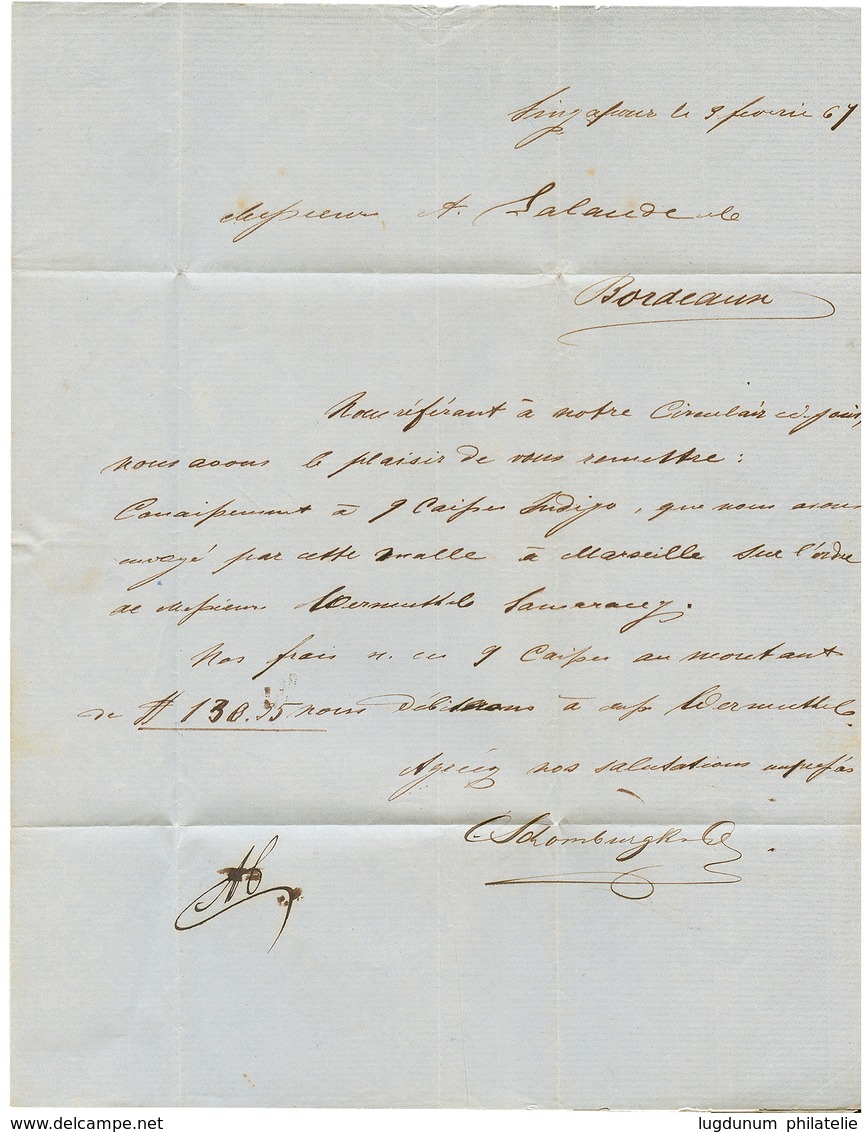 Singapour le 9 fevrie 67
Messieurs A. Lalande &Co
Bordeaux
Nous référant à notre Circulair
nous avons le plaisir de vous remettre :
Conaissement à 9 Caisses Indigo, que nous avons
envoyé par cette malle à Marseille sur l'ordre
de Messieurs Wermuth&Co Samarang.
Nos frais s. ces 9 Caisses au montant
de $ 130.95 nous débitrons à Wermuth&Co.
Agéez nos salutations
CSchomburgk&Co.
www.delcampe.net
lugdunum philatelie